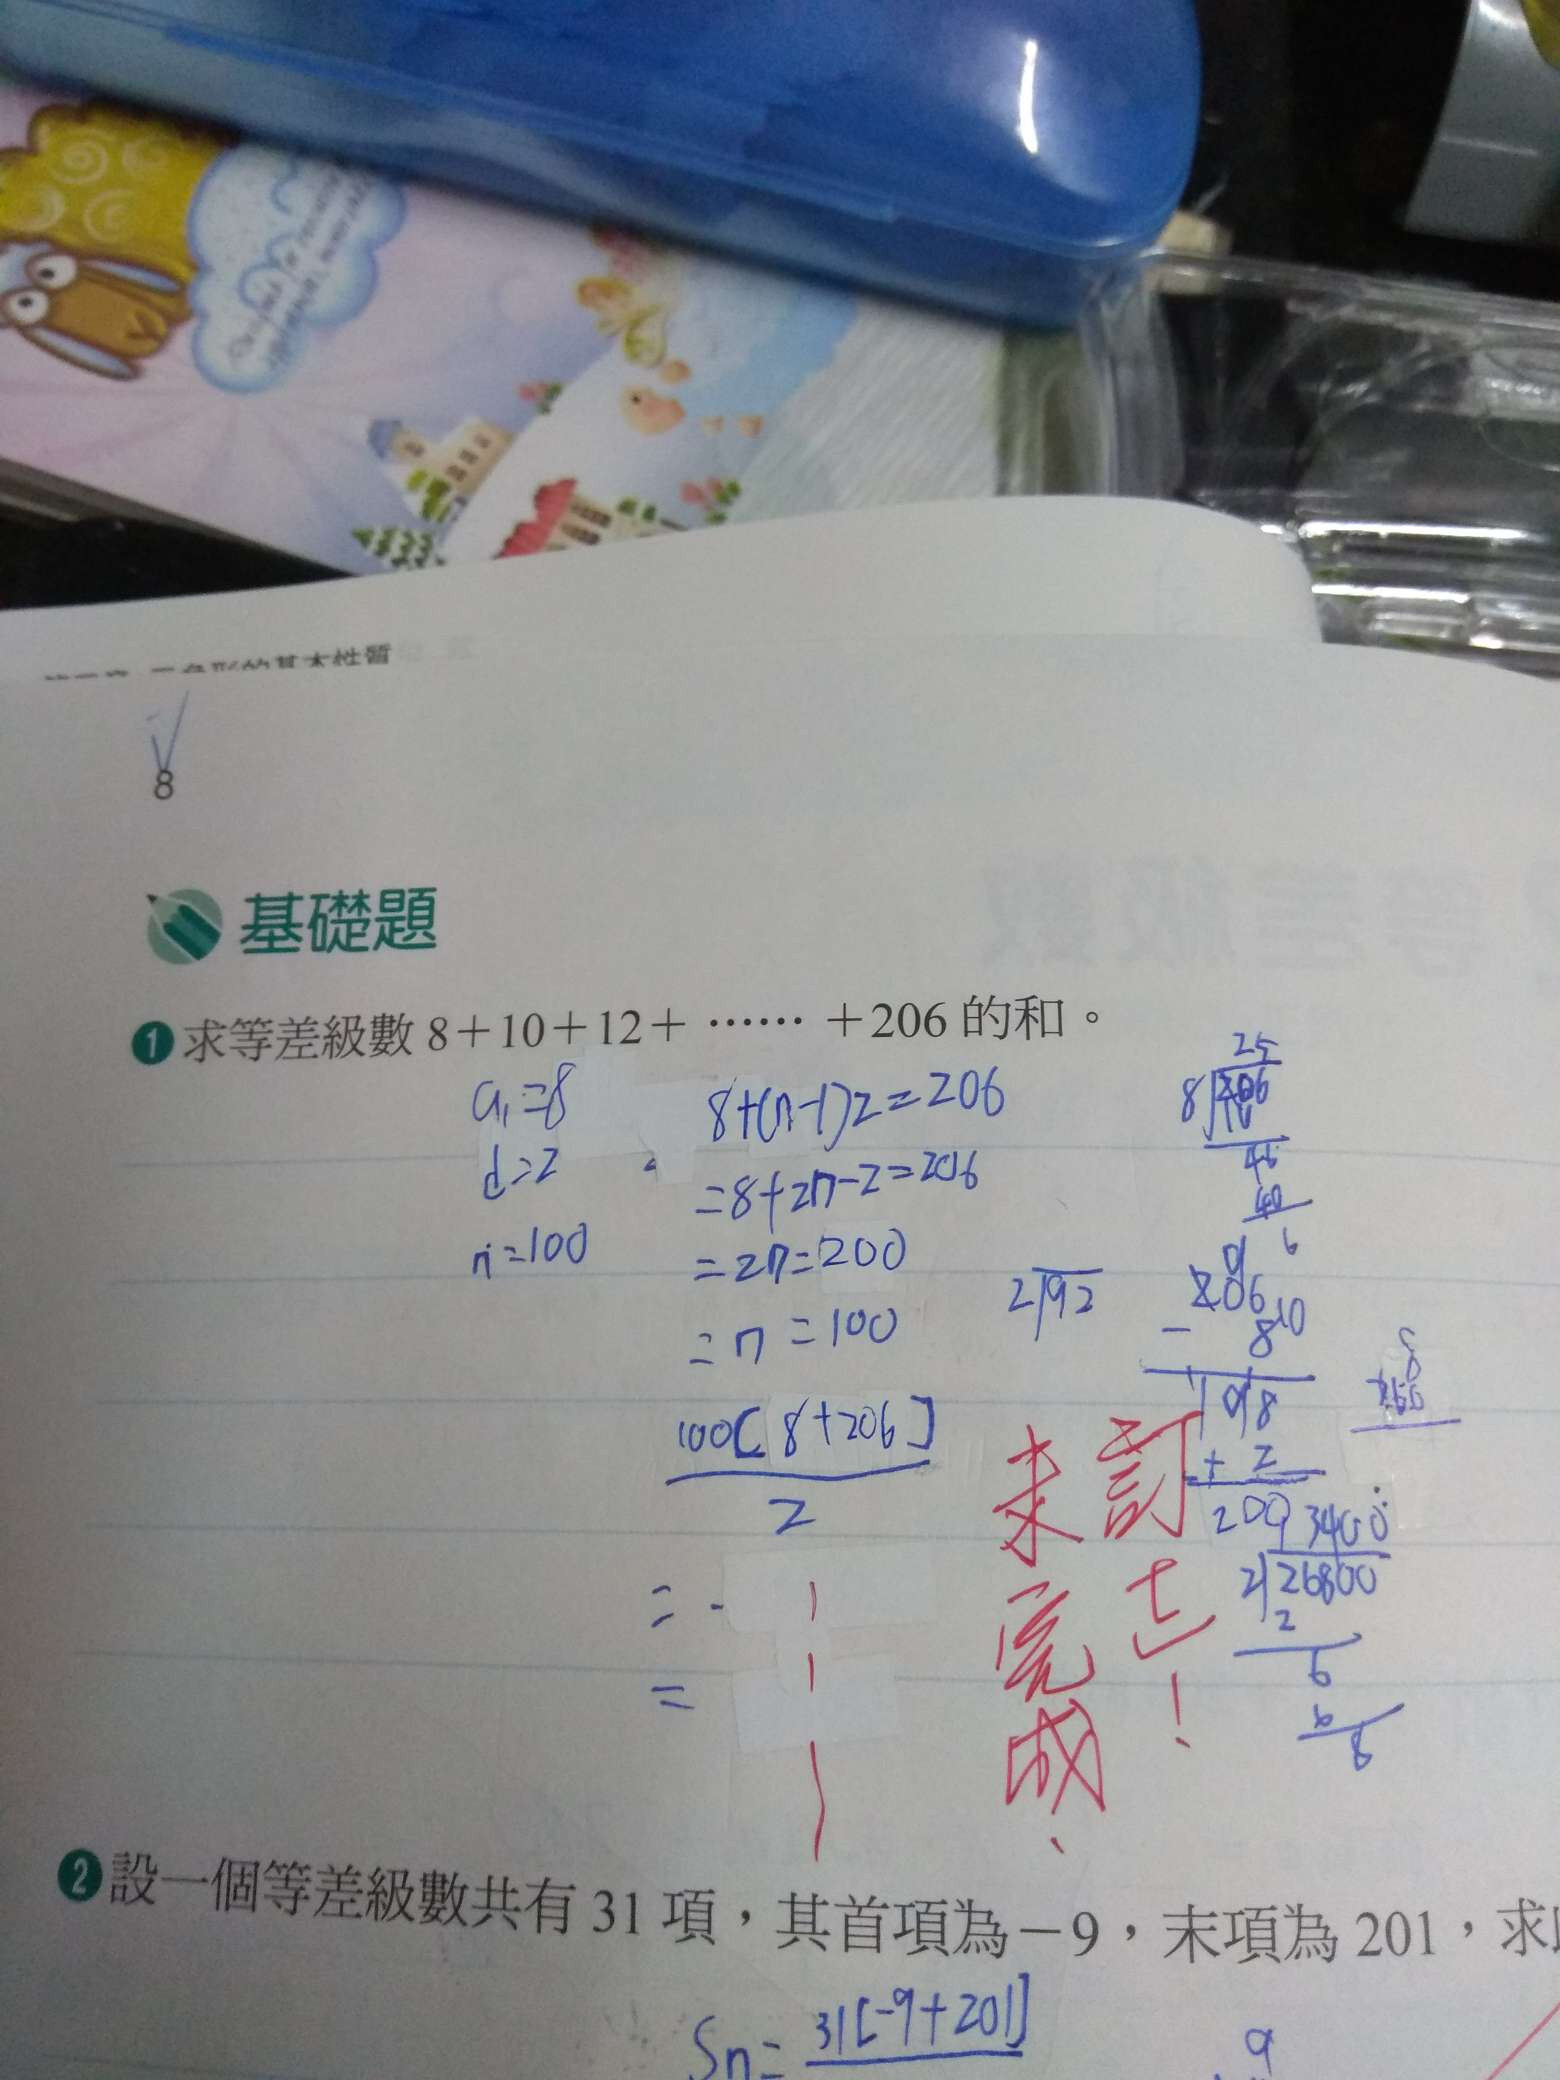 的基本性質
8
基礎題
1 求等差級數 8＋10＋12＋ …… ＋206 的和。
a₁=8
d=2
n=100
8+(n-1)2=206
=8+2n-2=206
=2n=200
=n=100
100[8+206]
2
=
=
25
8
46
40
6
2 92
206
10
- 8
198
+ 2
200
3400
2 26800
2
6
6
8
訂
未完成!
2 設一個等差級數共有 31 項，其首項為－9，末項為 201，求
Sn= 31[-9+201]
9